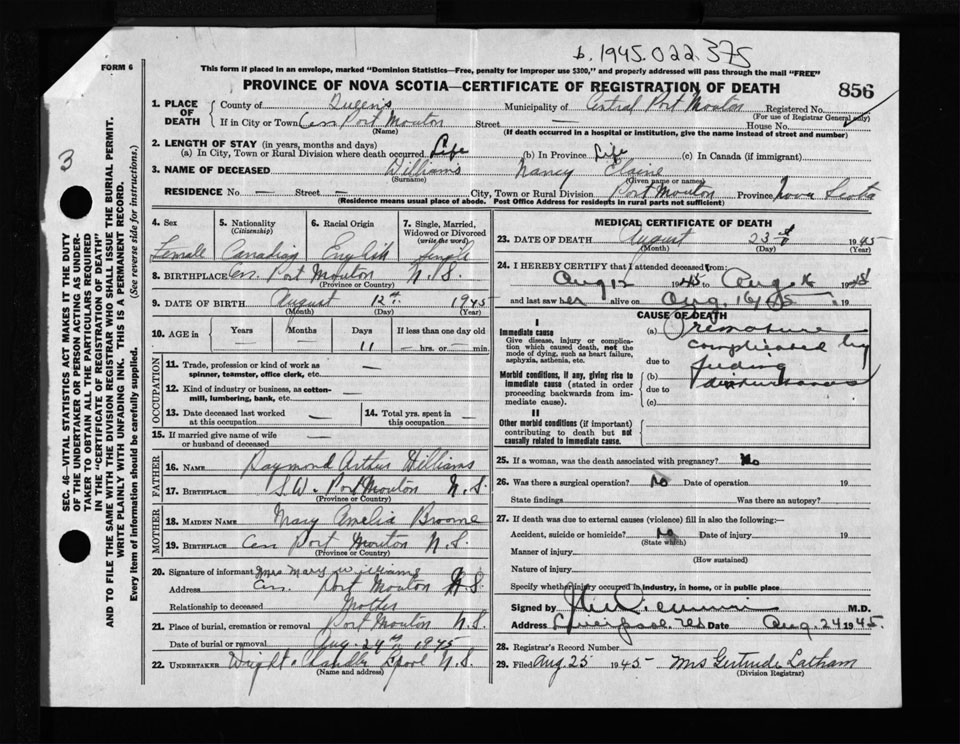 b. 1945.022.375
FORM 6
This form if placed in an envelope, marked "Dominion Statistics—Free, penalty for improper use $300," and properly addressed will pass through the mail "FREE"
PROVINCE OF NOVA SCOTIA—CERTIFICATE OF REGISTRATION OF DEATH
856
1. PLACE OF DEATH { County of Queens Municipality of Central Port Mouton Registered No.
(For use of Registrar General only)
If in City or Town Cen Port Mouton Street — House No.
(Name) (If death occurred in a hospital or institution, give the name instead of street and number)
2. LENGTH OF STAY (in years, months and days)
(a) In City, Town or Rural Division where death occurred Life (b) In Province Life (c) In Canada (if immigrant)
3. NAME OF DECEASED Williams Nancy Elaine
(Surname) (Given name or names)
RESIDENCE No — Street — City, Town or Rural Division Port Mouton Province Nova Scotia
(Residence means usual place of abode. Post Office Address for residents in rural parts not sufficient)
3
SEC. 46—VITAL STATISTICS ACT MAKES IT THE DUTY
OF THE UNDERTAKER OR PERSON ACTING AS UNDER-
TAKER TO OBTAIN ALL THE PARTICULARS REQUIRED
IN THE "CERTIFICATE OF REGISTRATION OF DEATH"
AND TO FILE THE SAME WITH THE DIVISION REGISTRAR WHO SHALL ISSUE THE BURIAL PERMIT.
WRITE PLAINLY WITH UNFADING INK. THIS IS A PERMANENT RECORD.
Every item of information should be carefully supplied. (See reverse side for instructions.)
4. Sex 5. Nationality (Citizenship) 6. Racial Origin 7. Single, Married, Widowed or Divorced (write the word)
Female Canadian English Single
8. BIRTHPLACE Cen. Port Mouton N.S.
(Province or Country)
9. DATE OF BIRTH August 12th 1945
(Month) (Day) (Year)
10. AGE in { Years Months Days If less than one day old
— — 11 — hrs. or — min.
OCCUPATION
11. Trade, profession or kind of work as spinner, teamster, office clerk, etc. —
12. Kind of industry or business, as cotton-mill, lumbering, bank, etc. —
13. Date deceased last worked at this occupation — 14. Total yrs. spent in this occupation —
15. If married give name of wife or husband of deceased —
FATHER
16. NAME Raymond Arthur Williams
17. BIRTHPLACE S.W. Port Mouton N.S.
(Province or Country)
MOTHER
18. MAIDEN NAME Mary Amelia Broome
19. BIRTHPLACE Cen Port Mouton N.S.
(Province or Country)
20. Signature of informant Mrs Mary Williams
Address Cen. Port Mouton N.S.
Relationship to deceased Mother
21. Place of burial, cremation or removal Port Mouton N.S.
Date of burial or removal Aug. 24th 1945
22. UNDERTAKER Wright Chandler Lpool N.S.
(Name and address)
MEDICAL CERTIFICATE OF DEATH
23. DATE OF DEATH August 23 1945
(Month) (Day) (Year)
24. I HEREBY CERTIFY that I attended deceased from:
Aug 12 1945 to Aug. 16 1945
and last saw her alive on Aug. 16/45 19
CAUSE OF DEATH
I
Immediate cause
Give disease, injury or complication which caused death, not the mode of dying, such as heart failure, asphyxia, asthenia, etc.
(a) Premature
complicated by
due to feeding
Morbid conditions, if any, giving rise to immediate cause (stated in order proceeding backwards from immediate cause).
(b) disturbances
due to
(c)
II
Other morbid conditions (if important) contributing to death but not causally related to immediate cause.
25. If a woman, was the death associated with pregnancy? No
26. Was there a surgical operation? No Date of operation 19
State findings Was there an autopsy?
27. If death was due to external causes (violence) fill in also the following:—
Accident, suicide or homicide? No Date of injury 19
(State which)
Manner of injury
(How sustained)
Nature of injury
Specify whether injury occurred in industry, in home, or in public place
Signed by M.D.
Address Liverpool NS Date Aug. 24 1945.
28. Registrar's Record Number
29. Filed Aug. 25 1945 Mrs Gertrude Latham
(Division Registrar)